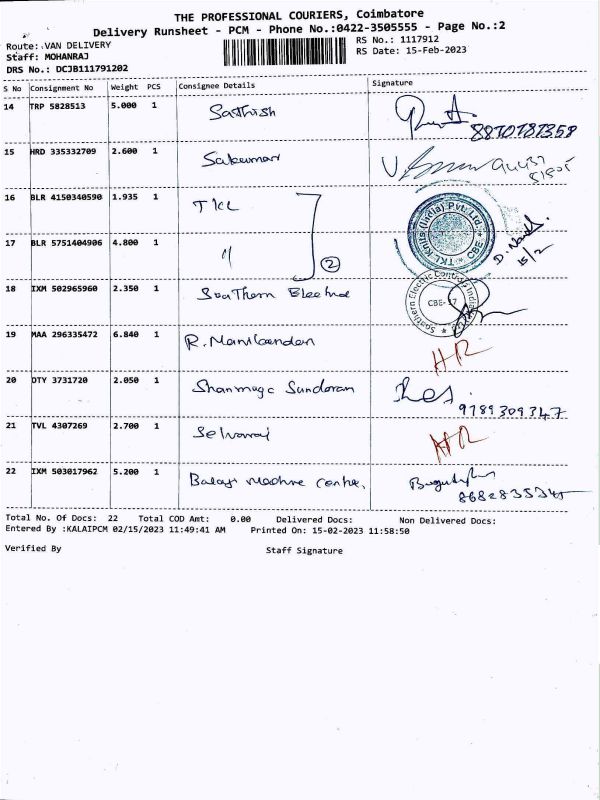 THE PROFESSIONAL COURIERS, Coimbatore
Delivery Runsheet - PCM - Phone No.:0422-3505555 - Page No.:2
Route: VAN DELIVERY
Staff: MOHANRAJ
DRS No.: DCJB111791202
RS No.: 1117912
RS Date: 15-Feb-2023
S No Consignment No Weight PCS Consignee Details Signature
14 TRP 5828513 5.000 1 Sathish
8870787358
15 HRD 335332709 2.600 1 Sakumar
16 BLR 4150340590 1.935 1 TKL
TKL Knits (India) Pvt. Ltd. * CBE *
17 BLR 5751404906 4.800 1 " 2
15/2
18 IXM 502965960 2.350 1 Southern
Southern Electric Controls India CBE-
19 MAA 296335472 6.840 1 R. Manikandan HR
20 DTY 3731720 2.050 1 Shanmuga Sundaram
9789309347
21 TVL 4307269 2.700 1 Selvaraj HR
22 IXM 503017962 5.200 1 Balaji machine centre,
Total No. Of Docs: 22 Total COD Amt: 0.00 Delivered Docs: Non Delivered Docs:
Entered By :KALAIPCM 02/15/2023 11:49:41 AM Printed On: 15-02-2023 11:58:50
Verified By Staff Signature